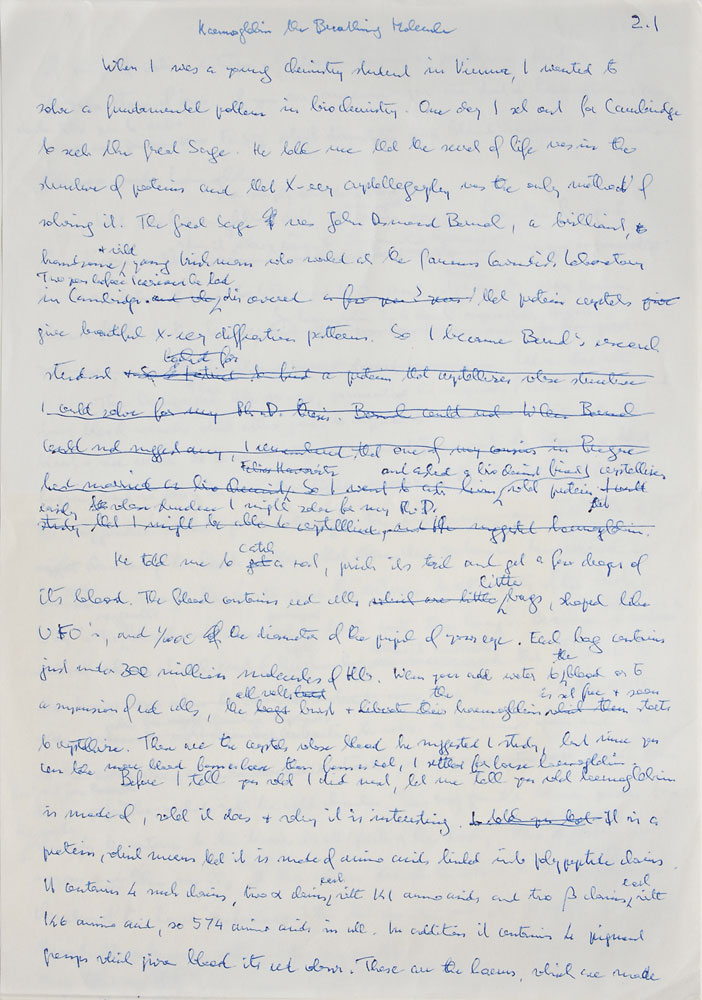 Haemoglobin the Breathing Molecule
2.1
When I was a young chemistry student in Vienna, I wanted to
solve a fundamental problem in biochemistry. One day I set out for Cambridge
to seek the great Sage. He told me that the secret of life was in the
structure of proteins and that X-ray crystallography was the only method of
solving it. The great Sage was John Desmond Bernal, a brilliant,
+ wild
handsome, young Irishman who worked at the famous Cavendish Laboratory
Two years before I arrived he had
in Cambridge. and he discovered a few years that protein crystals give
give beautiful X-ray diffraction patterns. So I became Bernal's research
student a protein that crystallises whose structure
I could solve for my Ph.D. thesis. Bernal could not When Bernal
could not suggest any, I remembered that one of my cousins in Prague
Felix Haurowitz and asked a biochemist friend crystallises
had married a biochemist. So I went to ask him, what protein I could
easily whose structure I might solve for my Ph.D.
study that I might be able to crystallise, and He suggested haemoglobin.
catch
He told me to get a rat, prick its tail and get a few drops of
little
its blood. The blood contains red cells which are little bags, shaped like
UFO's, and 1/1000 the diameter of the pupil of your eye. Each bag contains
the
just under 300 million molecules of Hb. When you add water to blood or to
cell walls the is set free + soon
a suspension of red cells, the bags burst + liberate their haemoglobin which then starts
to crystallise. These are the crystals whose blood he suggested I study, but since you
can take more blood from a horse than from a rat, I settled for horse haemoglobin.
Before I tell you what I did next, let me tell you what haemoglobin
is made of, what it does + why it is interesting. It is a
protein, which means that it is made of amino acids linked into polypeptide chains.
each each
It contains 4 such chains, two α chains, with 141 amino acids and two β chains, with
146 amino acid, so 574 amino acids in all. In addition it contains 4 pigment
groups which give blood its red colour. These are the haems, which are made